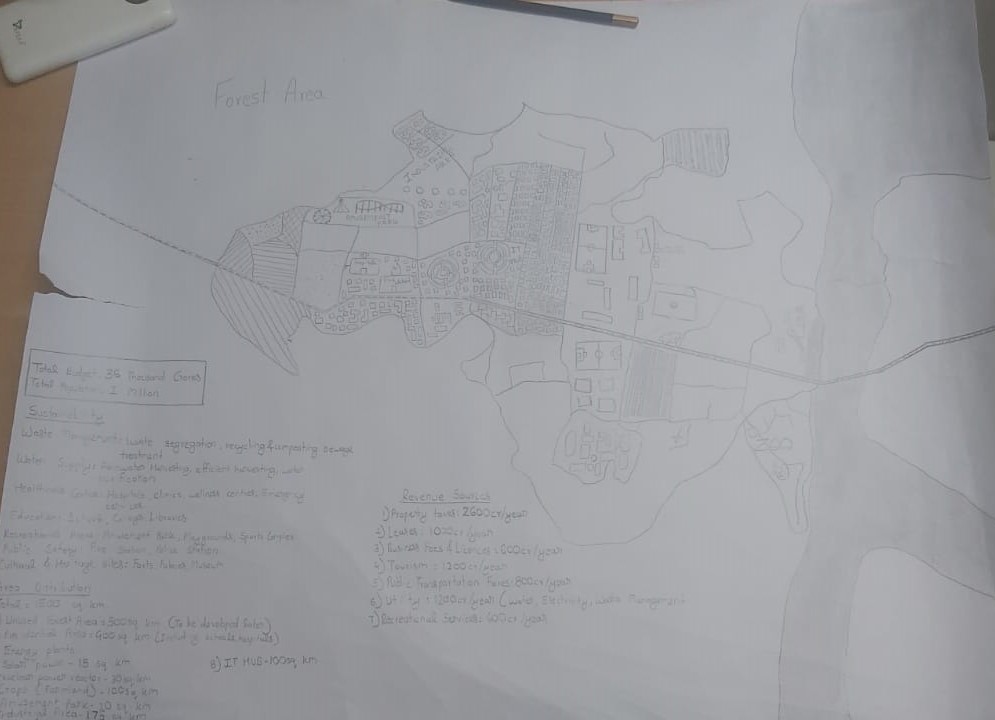 Forest Area
AMUSEMENT PARK
Total Budget: 36 Thousand Crores
Total Population: 1 Million
Sustainability
Waste Management: Waste segregation, recycling & composting, sewage
treatment
Water Supply: Rainwater Harvesting, efficient harvesting, water
Healthcare Center: Hospitals, clinics, wellness centres, Emergency
services
Education: School, College, Libraries
Recreational Area: Amusement Park, Playgrounds, Sports Complex
Public Safety: Fire Station, Police Station
Cultural & Heritage Sites: Forts, Palaces, Museum
Area Distribution
Total = 1500 sq km
Unused Forest Area = 300 sq km (To be developed later)
Residential Area = 400 sq km (Including schools, hospitals)
Energy plants
Solar power - 15 sq km
Nuclear power reactor - 30 sq km
Crops (Farmland) - 100 sq km
Amusement Park - 20 sq km
Industrial Area - 175 sq km
8) IT HUB - 100 sq km
Revenue Sources
1) Property taxes: 2600 cr/year
2) Leases: 1000 cr/year
3) Business Fees & Licences: 600 cr/year
4) Tourism = 1200 cr/year
5) Public Transportation Fares: 800 cr/year
6) Utility = 1200 cr/year (Water, Electricity, Waste Management
7) Recreational Services: 600 cr/year